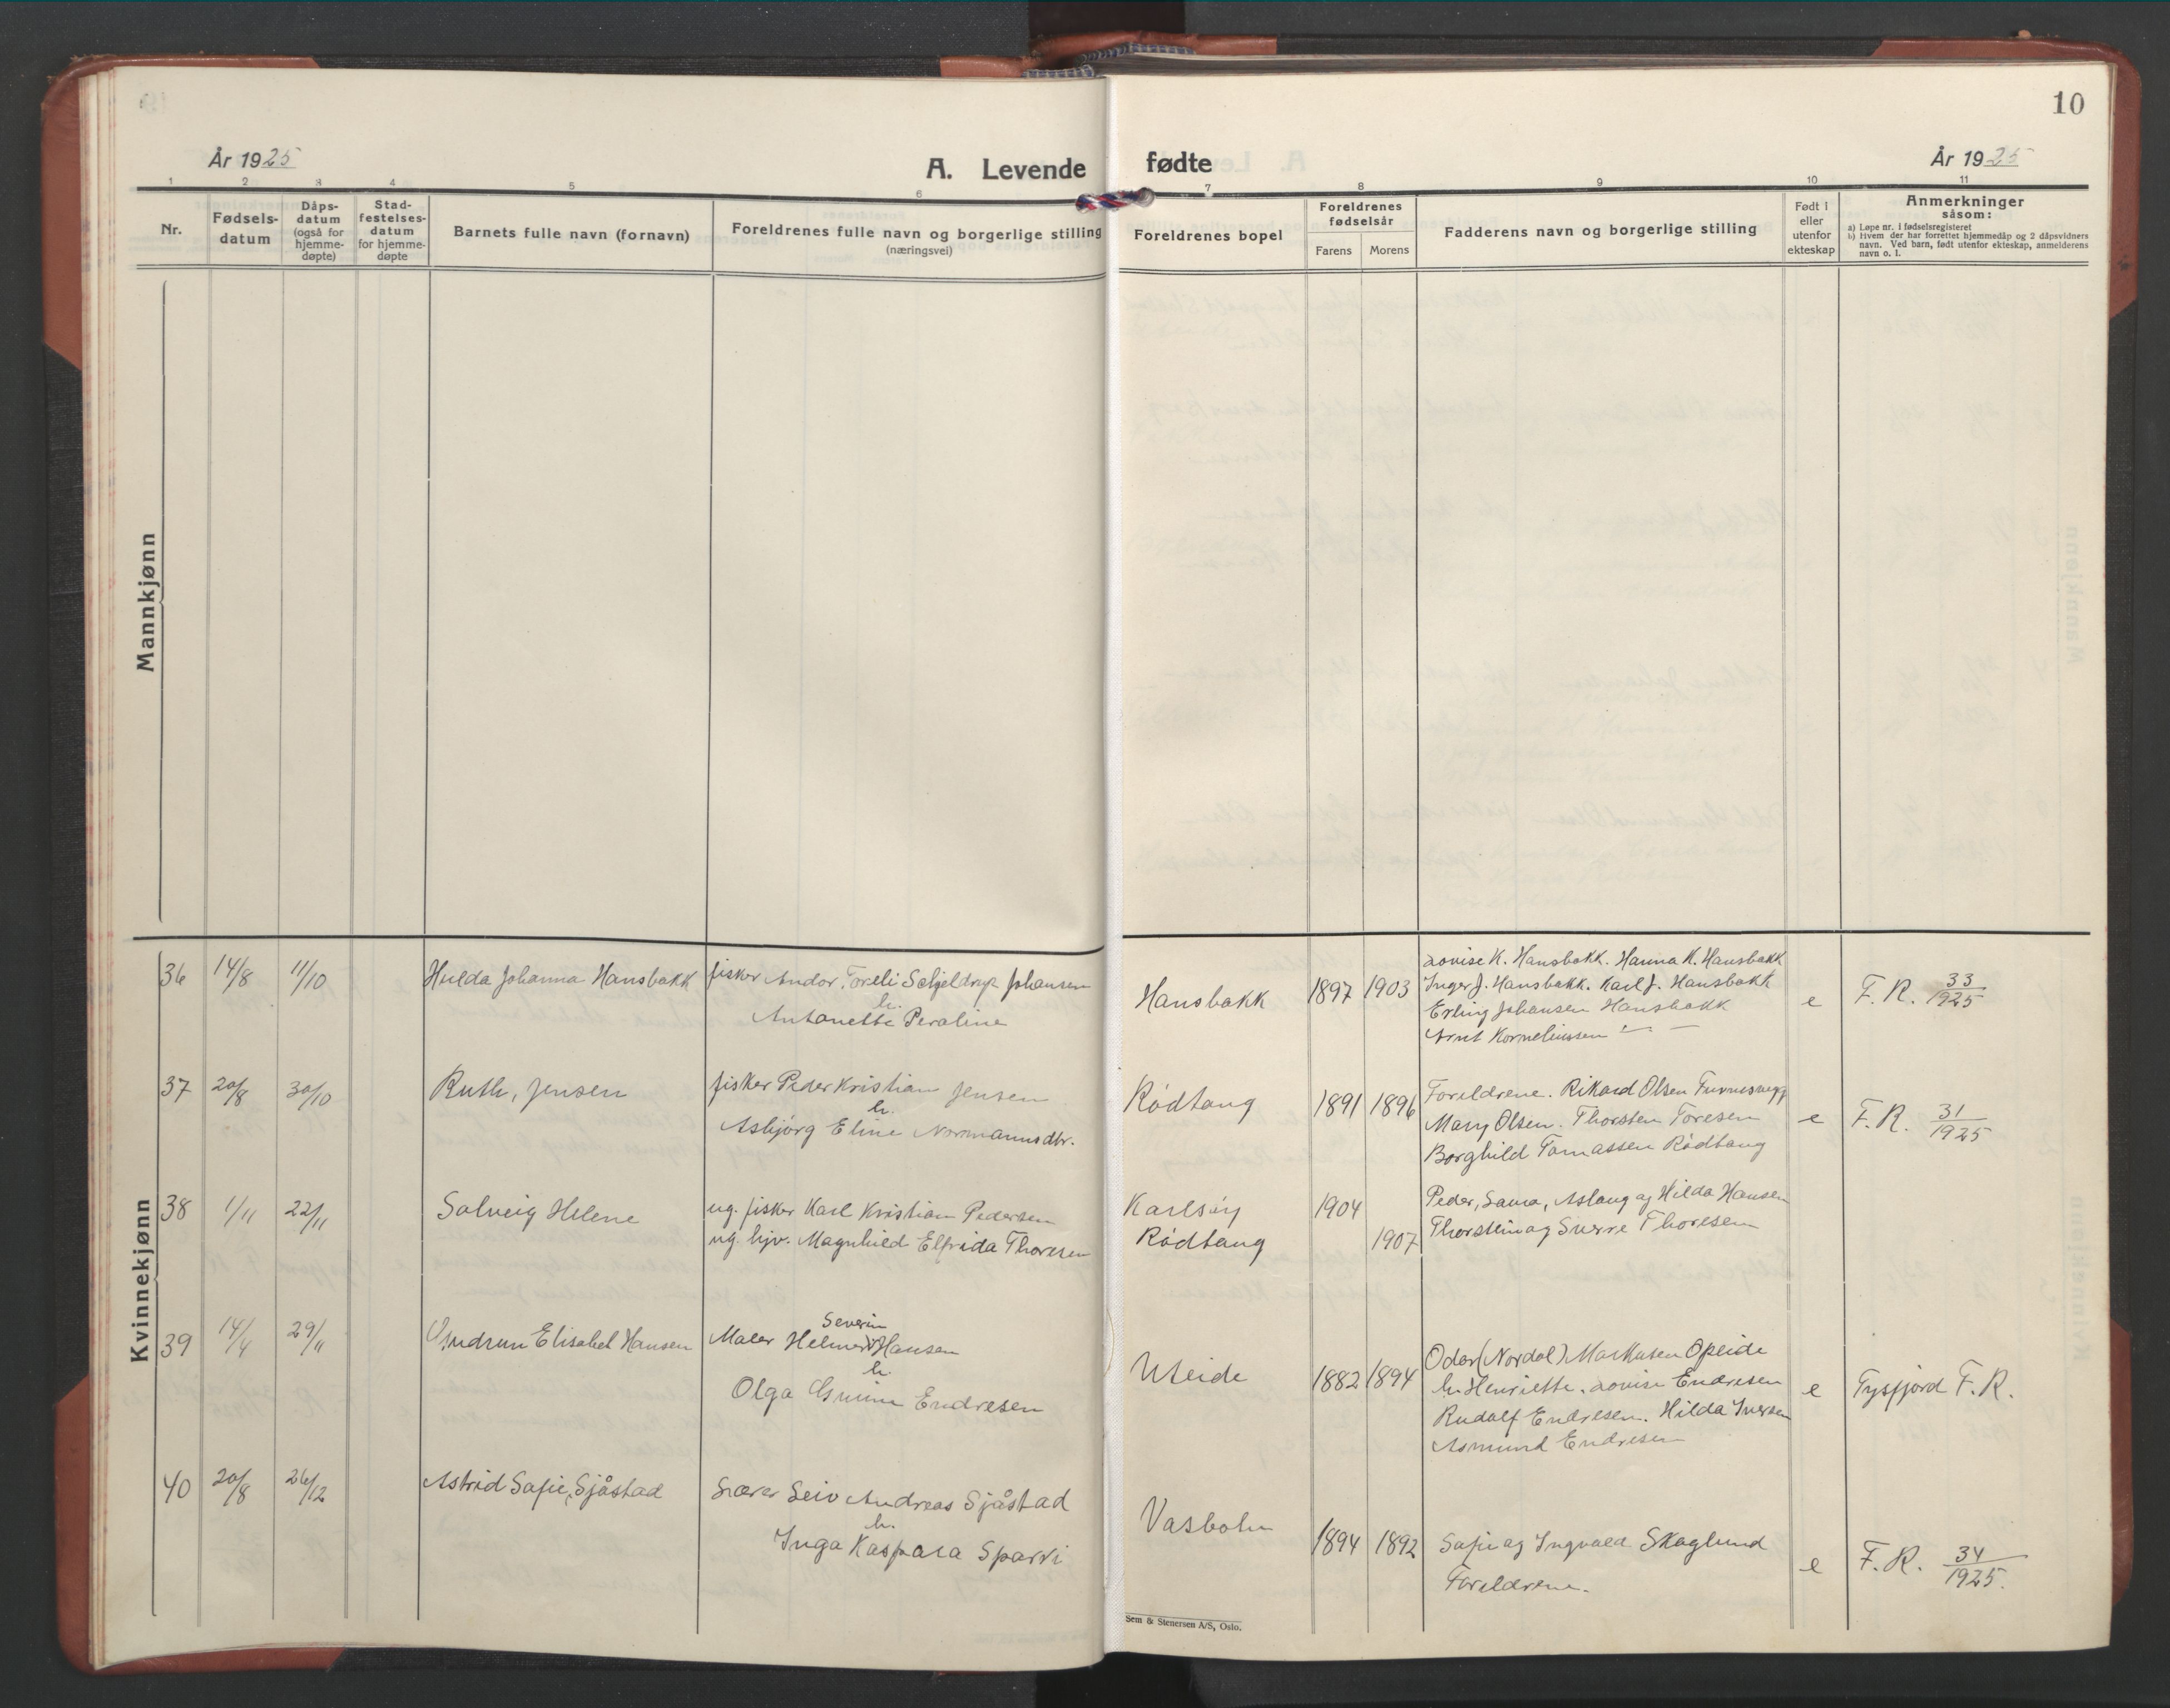 10
År 1925
A. Levende fødte
År 1925
1 2 3 4 5 6 7 8 9 10 11
Nr.
Fødsels-
datum
Dåps-
datum
(også for
hjemme-
døpte)
Stad-
festelses-
datum
for hjemme-
døpte
Barnets fulle navn (fornavn)
Foreldrenes fulle navn og borgerlige stilling
(næringsvei)
Foreldrenes bopel
Foreldrenes
fødselsår
Farens Morens
Fadderens navn og borgerlige stilling
Født i
eller
utenfor
ekteskap
Anmerkninger
såsom:
a) Løpe nr. i fødselsregisteret
b) Hvem der har forrettet hjemmedåp og 2 dåpsvidners
navn. Ved barn, født utenfor ekteskap, anmelderens
navn o. l.
Mannkjønn
Kvinnekjønn
36 14/8 11/10 Hulda Johanna Hansbakk
fisker Andor Toreli Schjeldrup Johansen
h.
Antonette Peraline
Hansbakk 1897 1903
Lovise K. Hansbakk. Hanna K. Hansbakk
Inger J. Hansbakk. Karl J. Hansbakk
Erling Johansen Hansbakk
Arnt Korneliussen
e F. R. 33/1925
37 20/8 30/10 Ruth, Jensen
fisker Peder Kristian Jensen
h.
Asbjørg Eline Normannsdtr.
Rødtang 1891 1896
Foreldrene. Rikard Olsen
Mary Olsen. Thorsten Toresen
Borghild Tomassen Rødtang
e F. R. 31/1925
38 1/11 22/11 Solveig Helene
ug. fisker Karl Kristian Pedersen
ug. hjv. Magnhild Elfrida Thoresen
Karlsøy 1904
Rødtang 1907
Peder, Laura, Aslaug og Hilda Hansen
Thorstein og Sverre Thoresen
39 14/4 29/11 Gudrun Elisabet Hansen
Severin
Maler Helmer Hansen
h.
Olga Endresen
Uteide 1882 1894
Odar (Nordal) Markusen Opeide
h. Henriette. Lovise Endresen
Rudolf Endresen. Hilda Iversen
Asmund Endresen
e Tysfjord F. R.
40 20/8 26/12 Astrid Sofie, Sjåstad
Lærer Leiv Andreas Sjåstad
h.
Inga Kaspara Sparvi
Vasbotn 1894 1892
Sofie og Ingvald Skoglund
Foreldrene.
e F. R. 34/1925.
Sem & Stenersen A/S, Oslo.